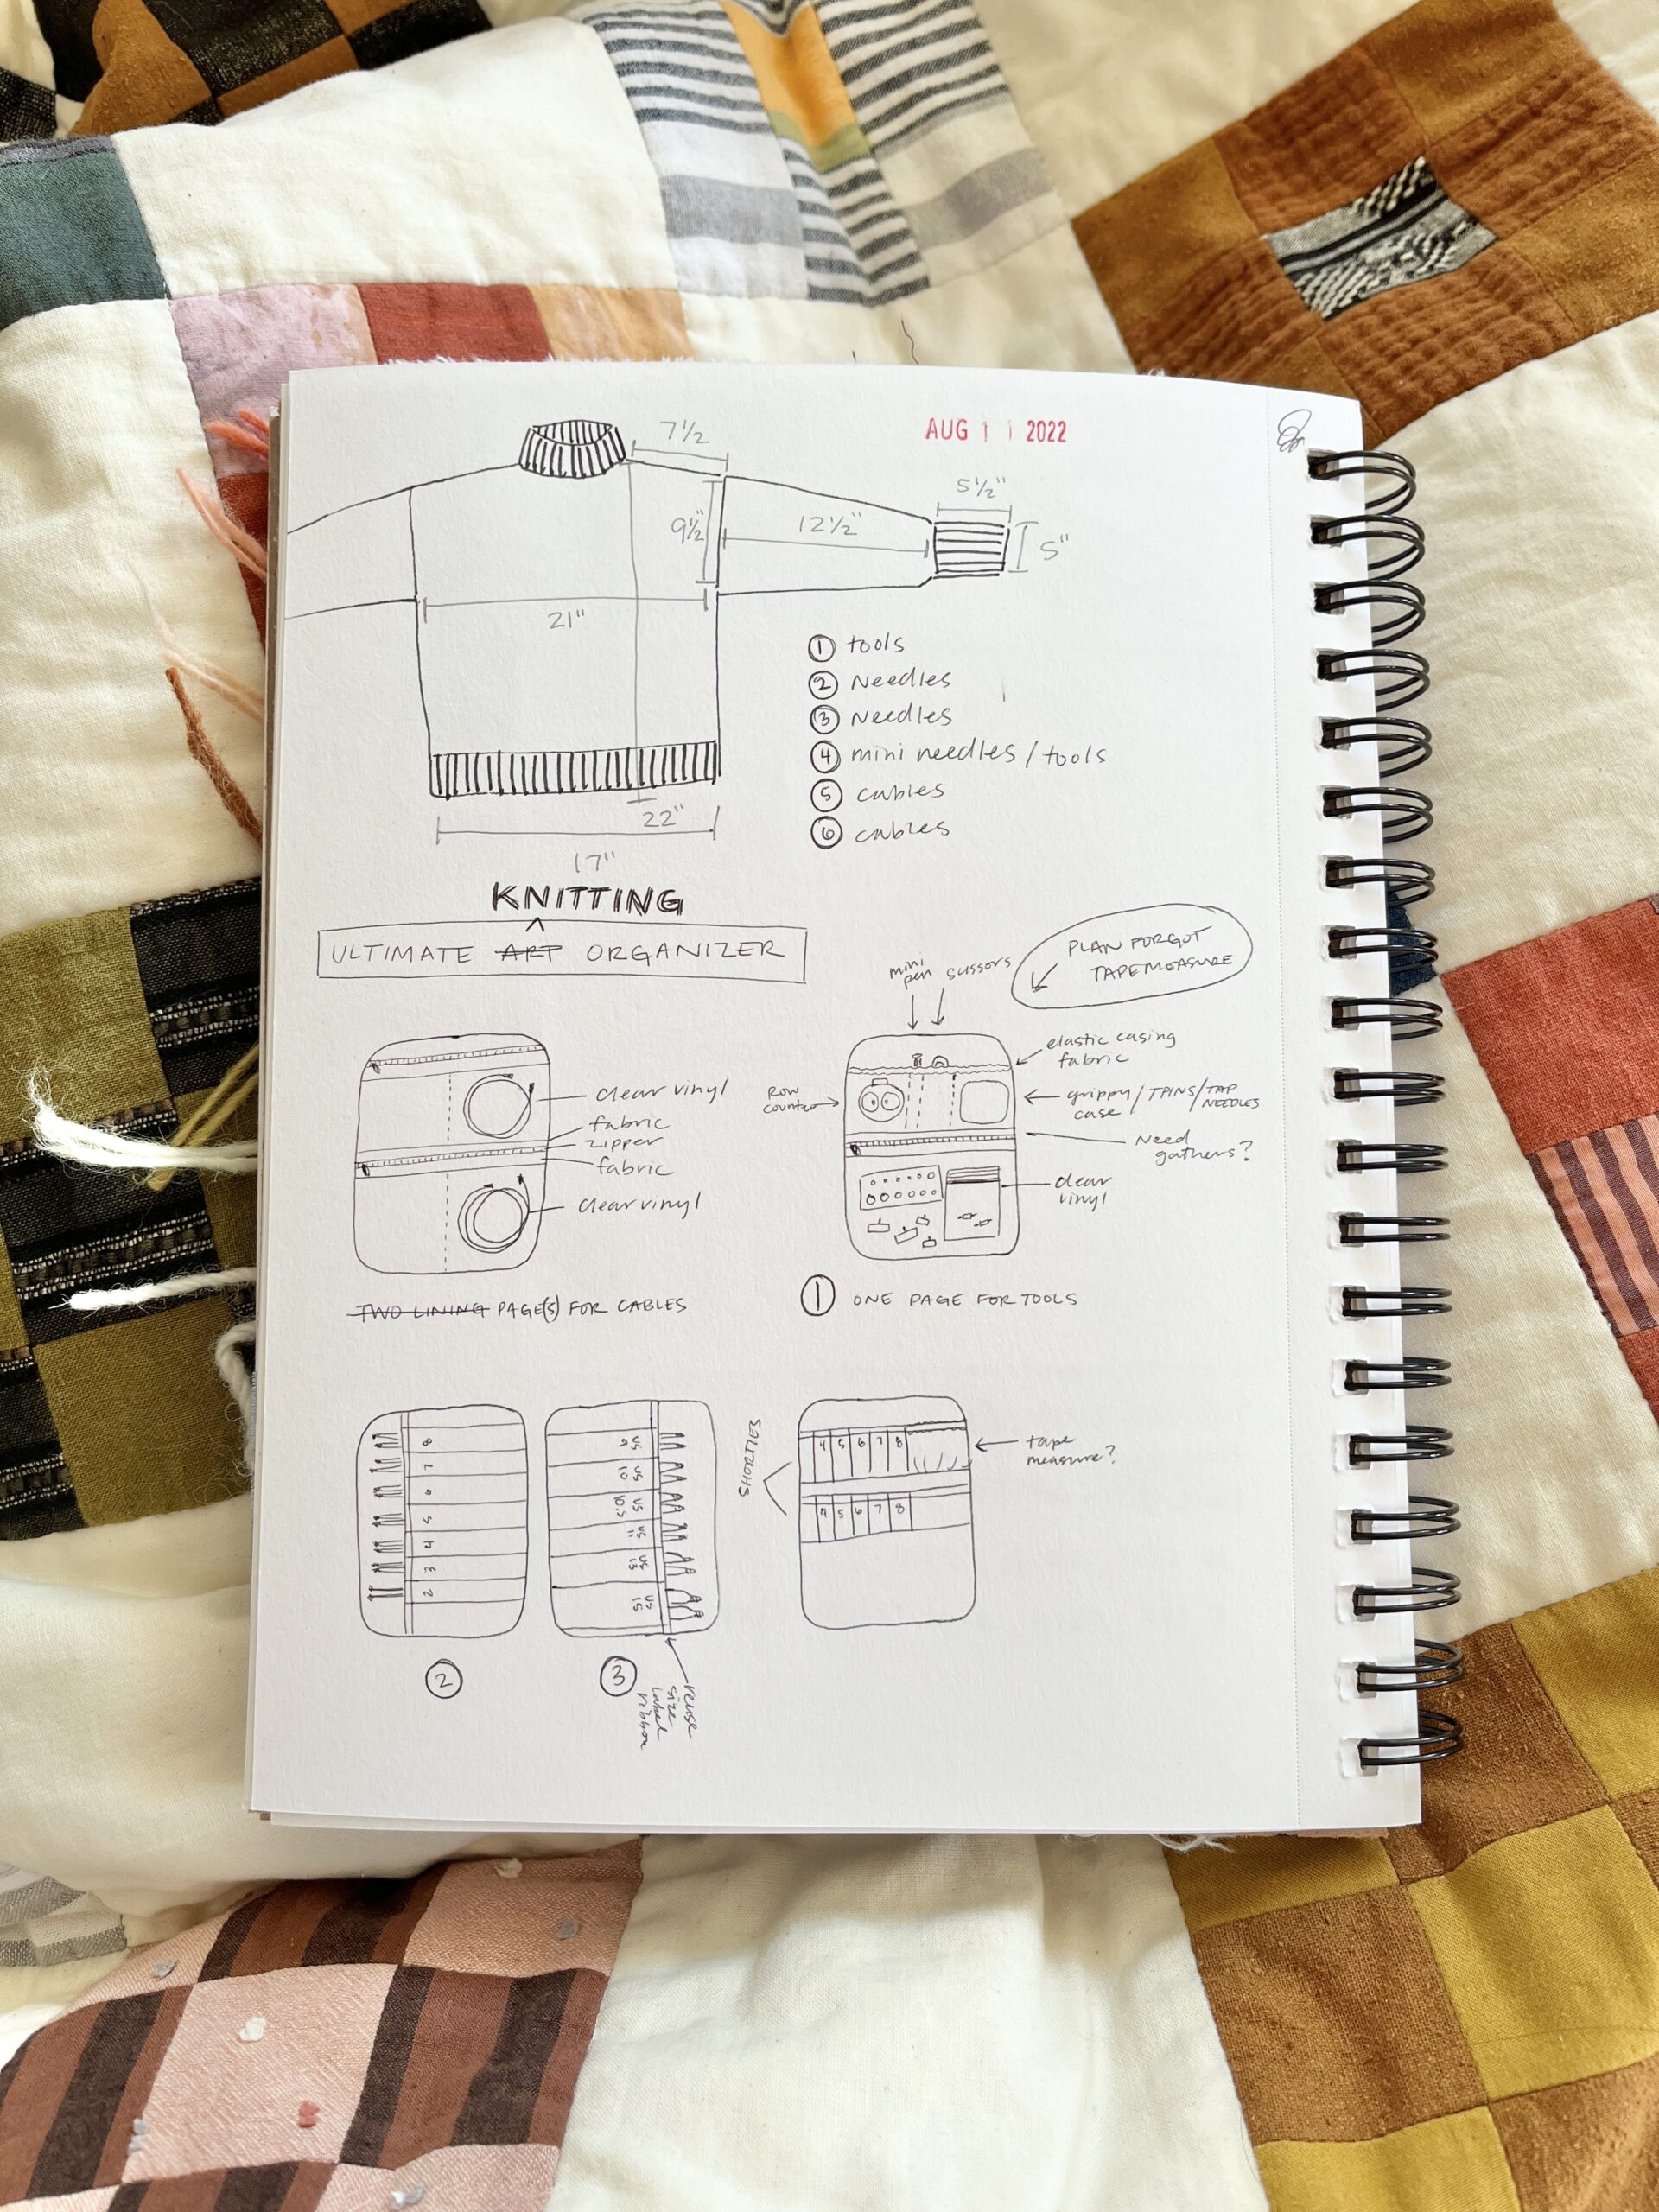 AUG 11 2022
7½
5½"
9½"
12½"
5"
21"
22"
17"
① tools
② Needles
③ Needles
④ mini needles / tools
⑤ cables
⑥ cables
KNITTING
^
ULTIMATE ART ORGANIZER
PLAN FORGOT
TAPE MEASURE
mini
pen
scissors
clear vinyl
fabric
zipper
fabric
clear vinyl
TWO LINING PAGE(S) FOR CABLES
elastic casing
fabric
Row
counter
grippy / TPINS / TAP
case NEEDLES
Need
gathers?
clear
vinyl
① ONE PAGE FOR TOOLS
8
7
6
5
4
3
2
②
US
9
US
10
US
10.5
US
11
US
13
US
15
③
reuse
size
label
ribbon
SHORTIES
4 5 6 7 8
4 5 6 7 8
tape
measure?